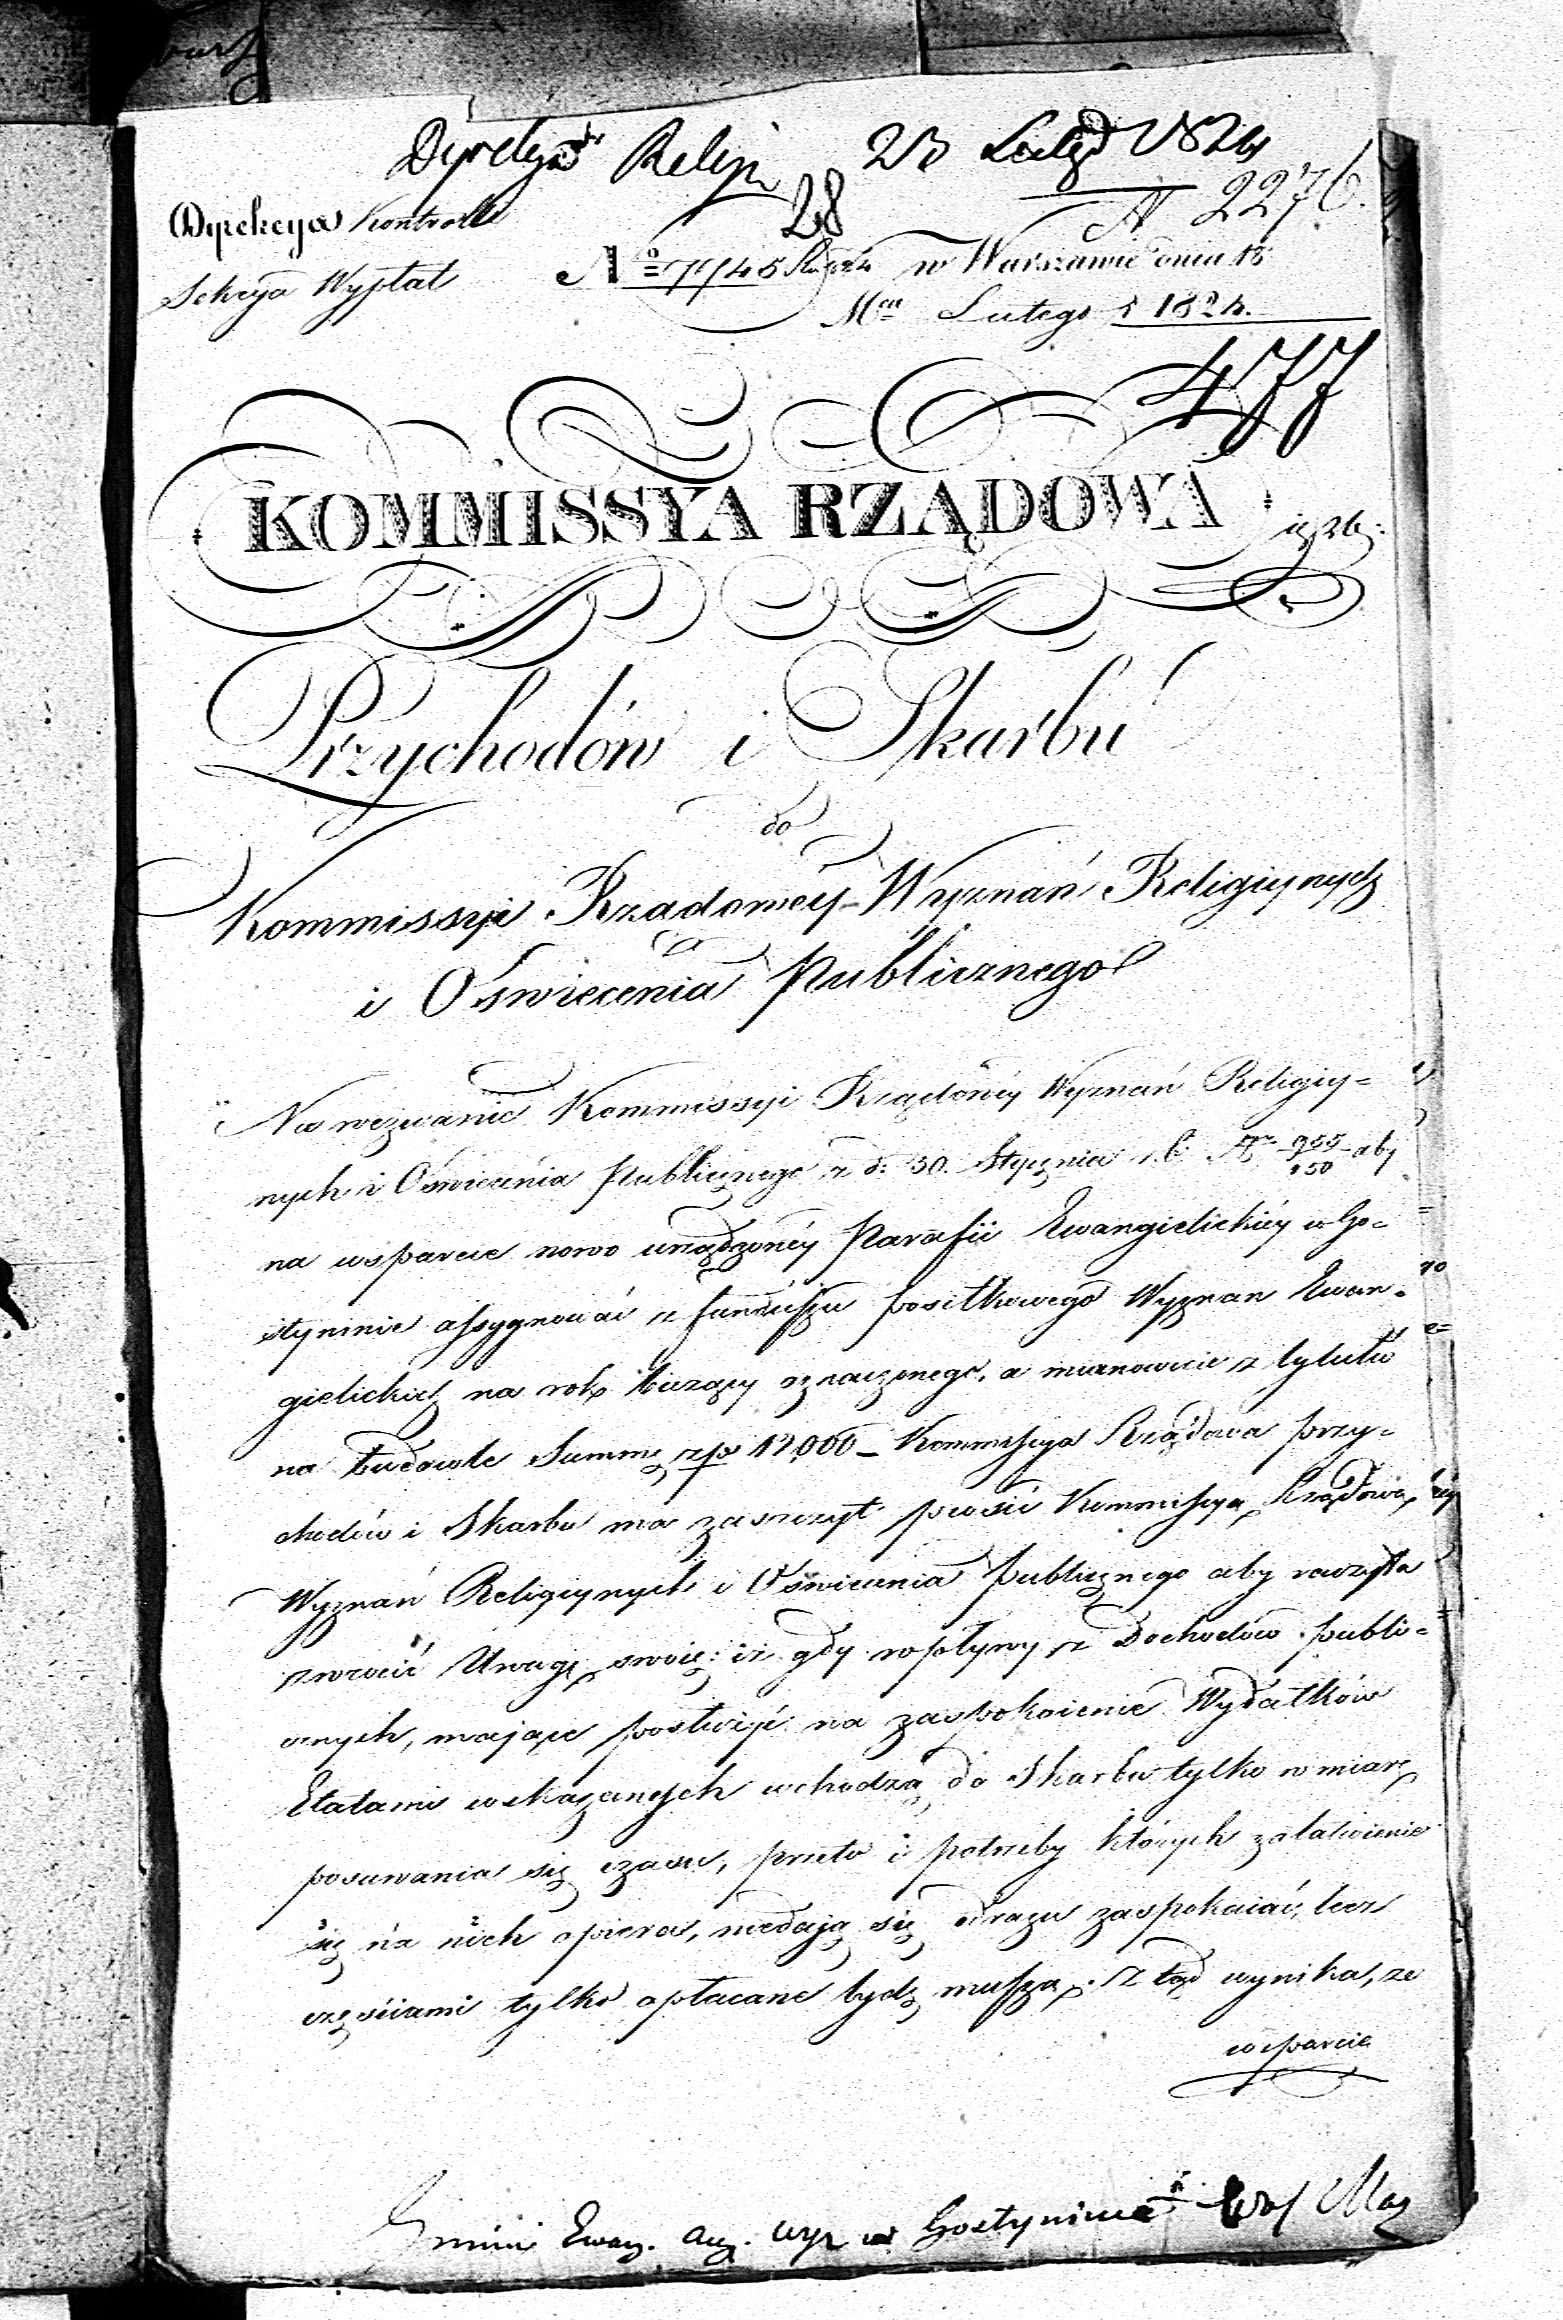 Dyrekcya Religii 23 Lutego 1824
28
N 2276.
Dyrekcya Kontrolli
Sekcya Wypłat
No 7745 w Warszawie dnia 18
Mca Lutego r 1824.
477
KOMMISSYA RZĄDOWA
Przychodów i Skarbu
do
Kommissyi Rządowey Wyznań Religiynych
i Oświecenia Publicznego
Na wezwanie Kommissyi Rządowey Wyznań Religiy=
nych i Oświecenia Publicznego z d: 30. Stycznia r. b. Nro 955/150 aby
na wsparcie nowo urządzoney Parafii Ewangielickiey w Go=
styninie assygnować z funduszu posiłkowego Wyznan Ewan=
gielickich na rok bieżący oznaczonego, a mianowicie z tytułu
na budowle Summę zp 12,000 – Kommissya Rządowa przy=
chodów i Skarbu ma zaszczyt prosić Kommissyą Rządową
Wyznań Religiynych i Oświecenia publicznego aby raczyła
zwrocić Uwagę swoię: iż gdy wpływy z Dochodów publi=
cznych, maiące posłużyć na zaspokoienie Wydatków
Etatami wskazanych wchodzą do Skarbu tylko w miarę
posuwania się czasu, przeto i potrzeby których załatwienie
się na nich opiera, niedaią się odrazu zaspokaiać, lecz
częściami tylko opłacane bydź muszą. Z tąd wynika, ze
wsparcie
Gminie Ewang. Aug. wyz w Gostyninie Woj Maz